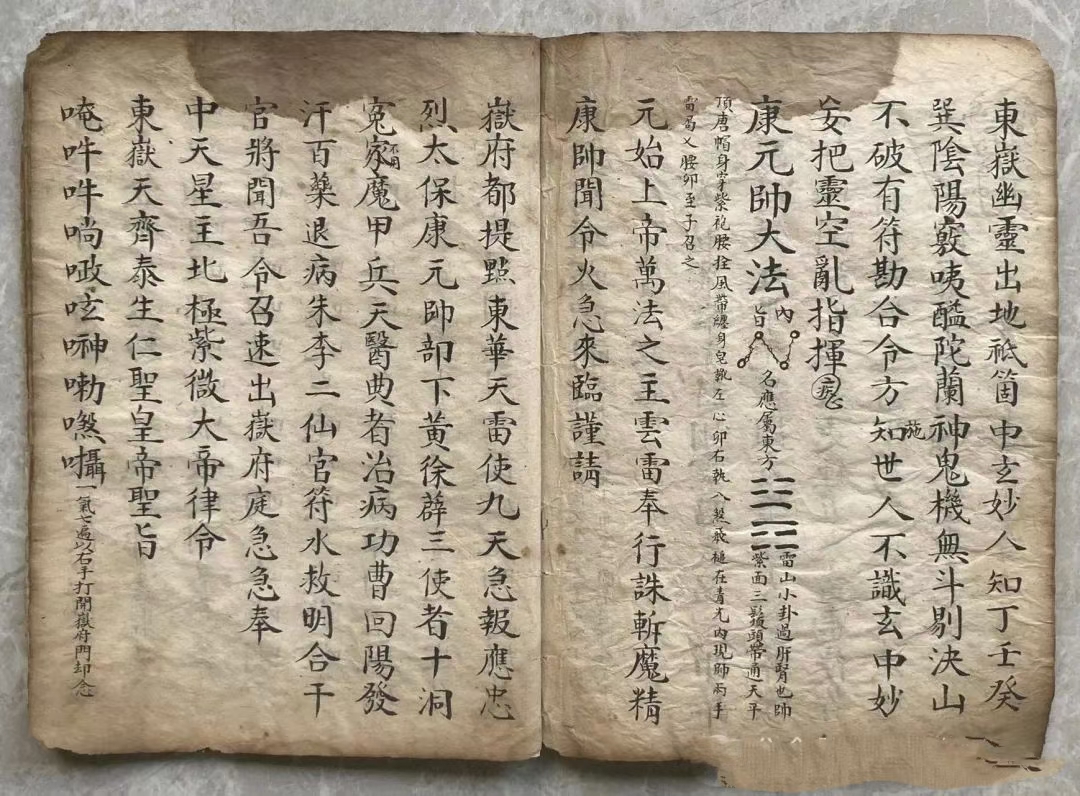 東嶽幽靈出地祇箇中玄妙人知丁壬癸
巽陰陽竅咦醯陀蘭神鬼機無斗剔決山
不破有符勘合令方知施世人不識玄中妙
妄把靈空亂指揮
康元帥大法
內旨
名應屬東方
雷山小卦過肝腎也帥
紫面三鬚頭帶通天平
頂唐帽身穿紫袍腰拴風帶纏身皂靴左心卯右執八煞飛槌在青光內現師兩手
雷局乂腰卯至子召之
元始上帝萬法之主雲雷奉行誅斬魔精
康帥聞令火急來臨謹請
嶽府都提點東華天雷使九天急報應忠
烈太保康元帥部下黃徐薜三使者十洞
冤家不用魔甲兵天醫典者治病功曹回陽發
汗百藥退病朱李二仙官符水救明合干
官將聞吾令召速出嶽府庭急急奉
中天星主北極紫微大帝律令
東嶽天齊泰生仁聖皇帝聖旨
唵吽吽啗呶呟呻嘞噁囁一氣七遍以右手打開嶽府門却念